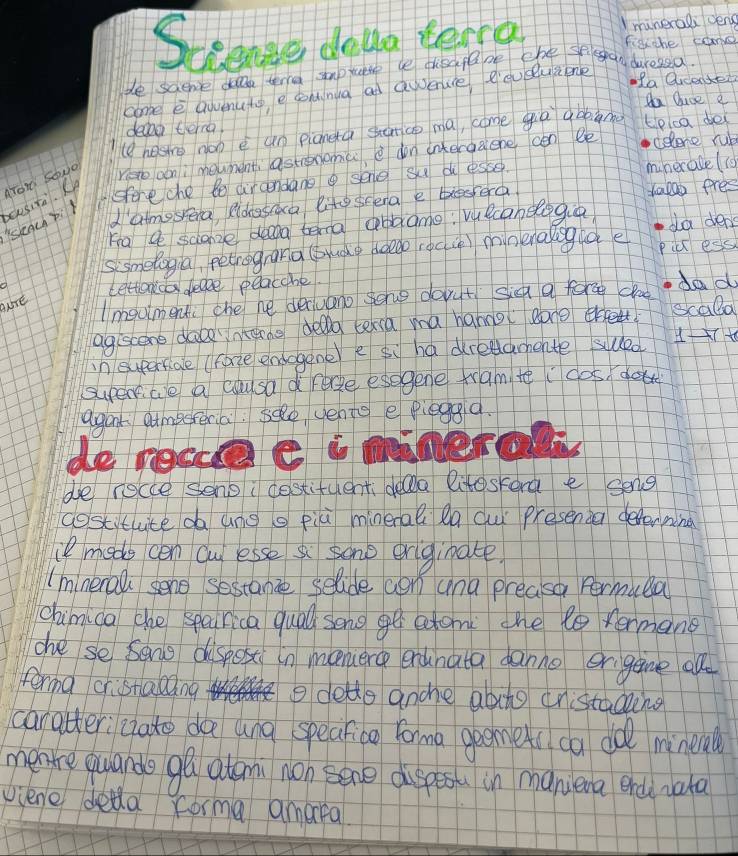 Scienze della terra
Le scienze della terra sono tutte le discipline che spiegano
come è avvenuto, e continua ad avvenire, l'evoluzione
della terra.
Il nostro non è un pianeta statico ma, come già abbiamo
visto con i movimenti astronomici, è in interazione con le
sfere che lo circondano e sono su di esso.
L'atmosfera, l'idrosfera, litosfera e biosfera.
Fra le scienze della terra abbiamo: vulcanologia,
sismologia, petrografia (studio delle rocce), mineralogia e
tettonica delle placche.
I movimenti che ne derivano sono dovuti sia a forze che
agiscono dall'interno della terra ma hanno i loro effetti
in superficie (forze endogene) e si ha direttamente sulla
superficie a causa di forze esogene tramite i cosidetti
agenti atmosferici: sole, vento e pioggia.
Le rocce e i minerali
Le rocce sono i costituenti della litosfera e sono
costituite da uno o più minerali la cui presenza determina
il modo con cui esse si sono originate.
I minerali sono sostanze solide con una precisa formula
chimica che specifica quali sono gli atomi che lo formano
che se sono disposti in maniera ordinata danno origine alla
forma cristallina o detto anche abito cristallino
caratterizzato da una specifica forma geometrica del minerale
mentre quando gli atomi non sono disposti in maniera ordinata
viene detta forma amorfa.
I minerali
fisiche come
durezza.
•La
la luce e
tipica del
•colore
minerale
•la dens
più ess
•la d
scala
ATOMI SONO
DENSITÀ: